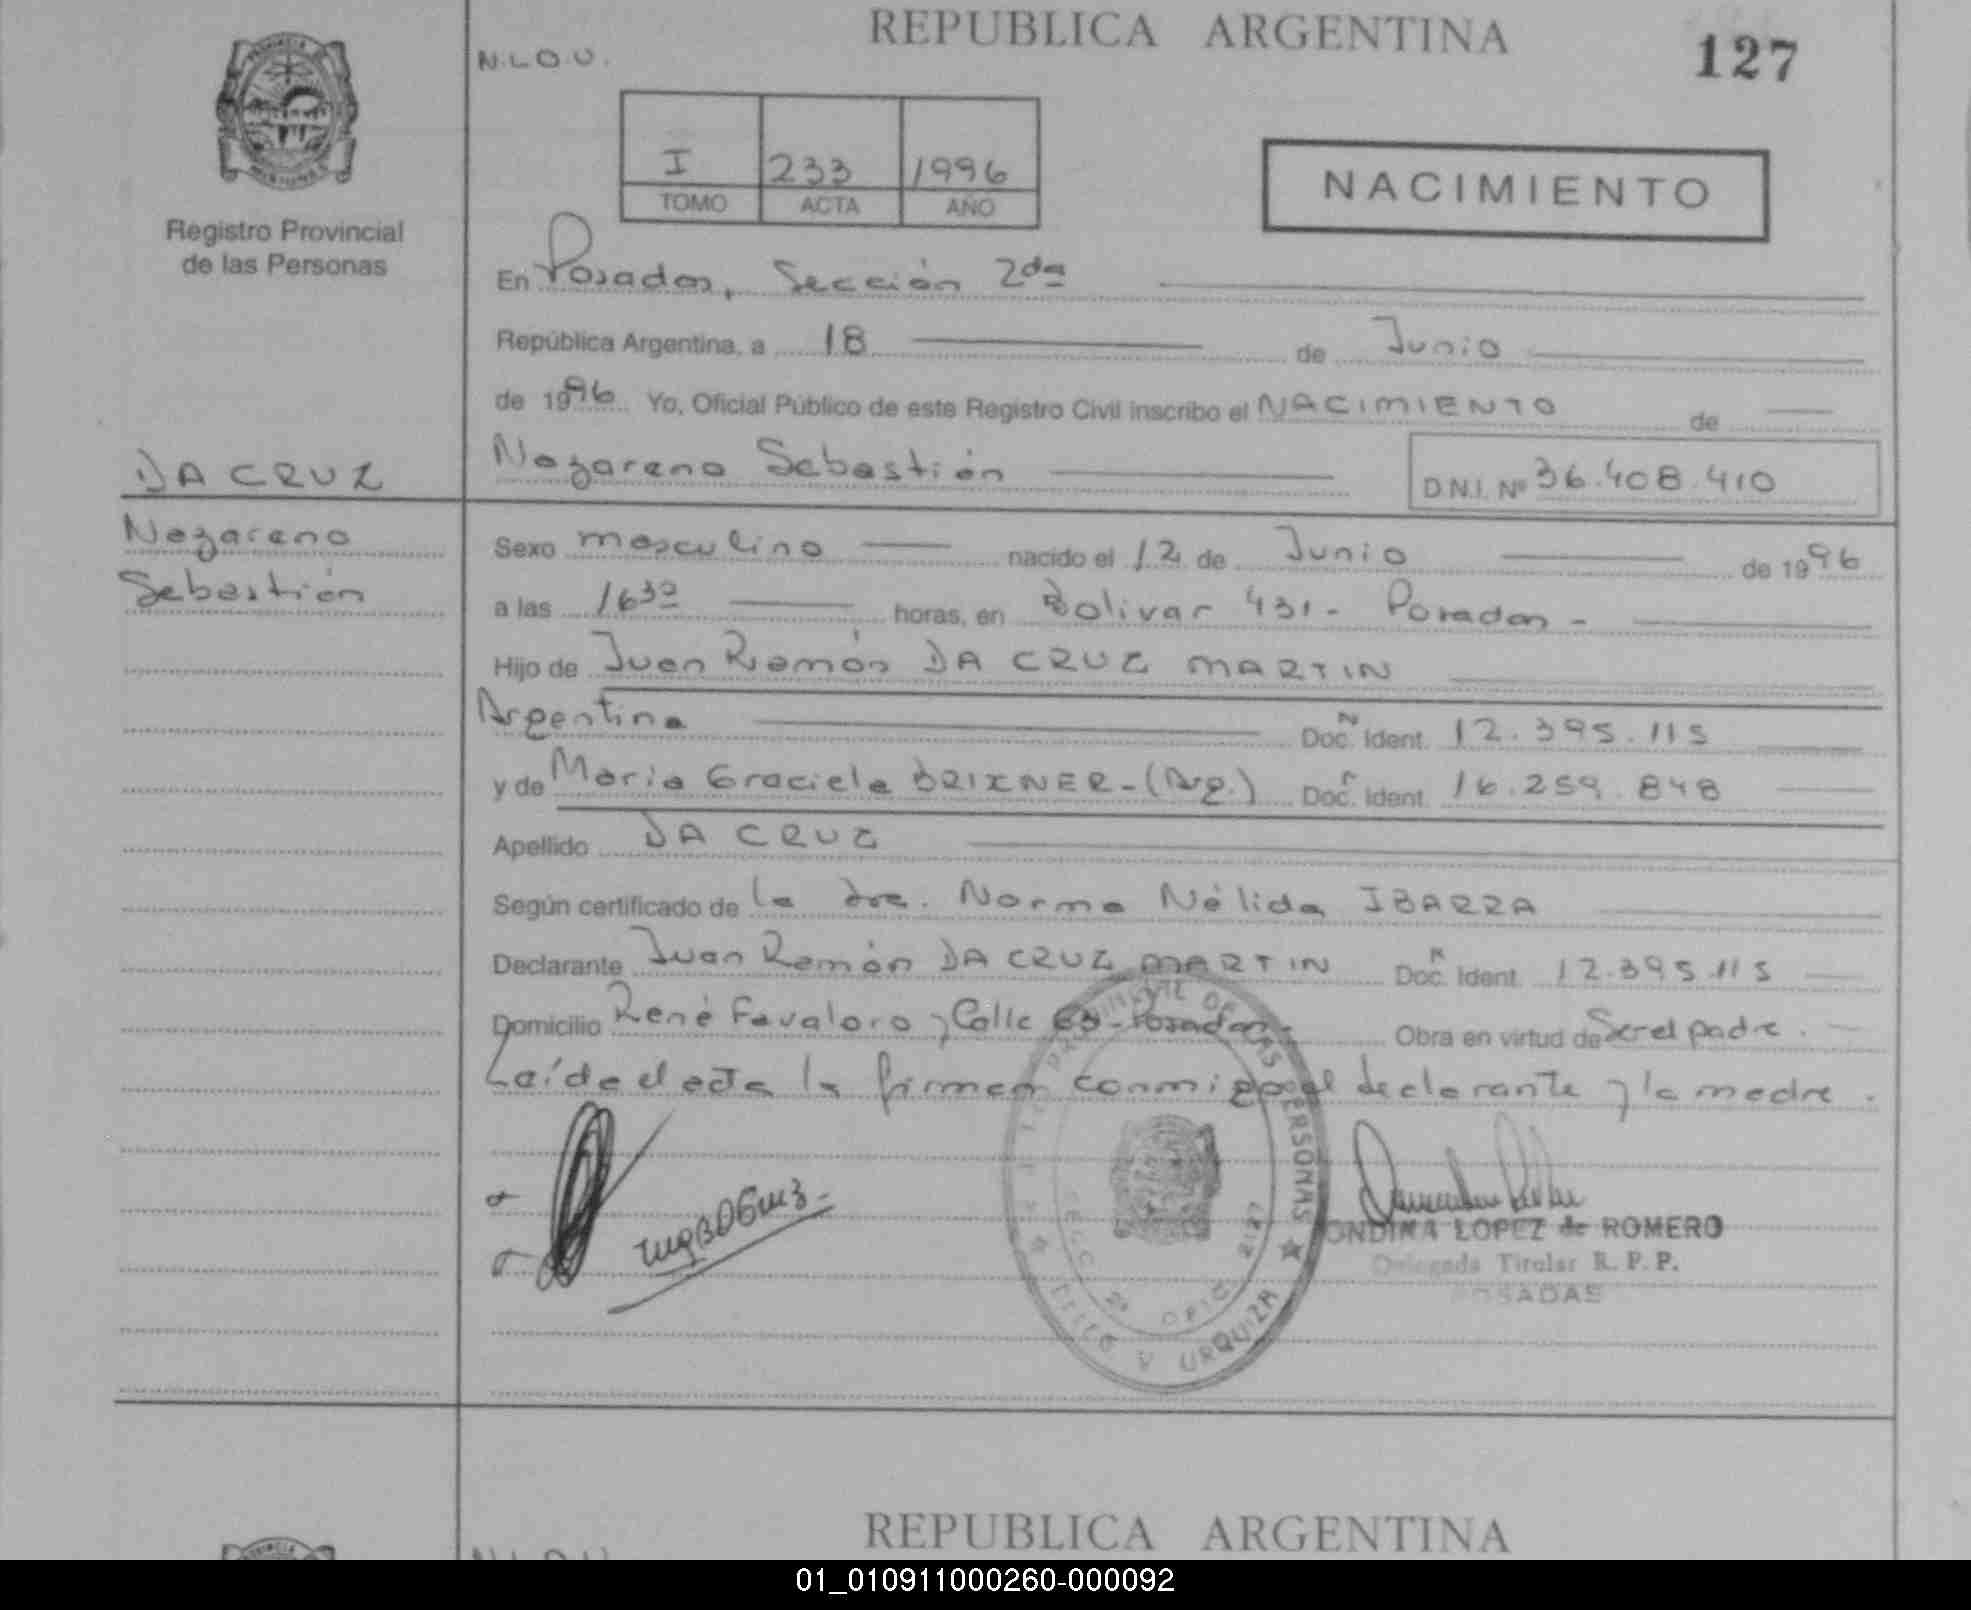 REPUBLICA ARGENTINA
127
N.L.O.U.
PROVINCIA
MISIONES
Registro Provincial
de las Personas
I 233 1996
TOMO ACTA AÑO
NACIMIENTO
En Posadas, Sección 2da
República Argentina, a 18 de Junio
de 1996 Yo, Oficial Público de este Registro Civil inscribo el NACIMIENTO de
DA CRUZ
Nazareno Sebastián
D.N.I. Nº 36.408.410
Nazareno
Sebastián
Sexo masculino nacido el 12 de Junio de 1996
a las 16 30 horas, en Bolivar 431 - Posadas -
Hijo de Juan Ramón DA CRUZ MARTIN
Argentina Doc. N Ident. 12.395.115
y de María Graciela BRIXNER - (Arg.) Doc. Ident. 16.259.848
Apellido DA CRUZ
Según certificado de la dra. Norma Nélida IBARRA
Declarante Juan Ramón DA CRUZ MARTIN Doc. N Ident. 12.395.115
Domicilio René Favaloro y Calle 63 - Posadas - Obra en virtud de Ser el padre.
Leída el acta la firman conmigo el declarante y la madre.
DE LAS PERSONAS
OFIC
URQUIZA
ONDINA LOPEZ de ROMERO
Delegada Titular R. P. P.
POSADAS
REPUBLICA ARGENTINA
PROVINCIA
N.L.O.U.
01_010911000260-000092